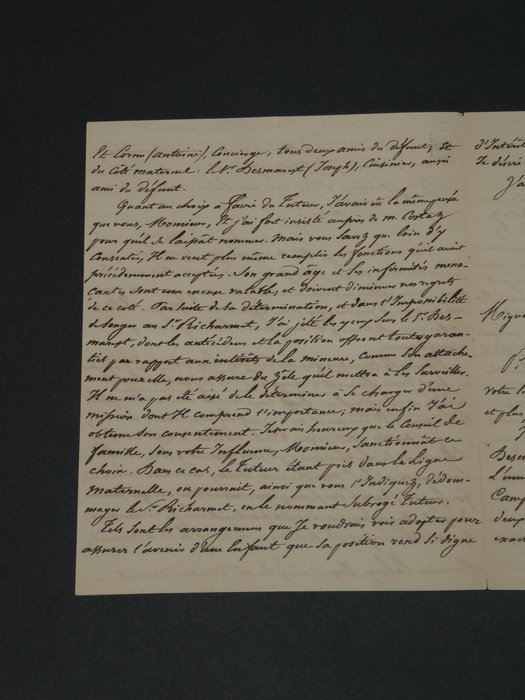 Et Cornu (antoine), Concierge, tous deux amis du défunt; Et
du côté maternel: le Sr. Desmanest (Joseph), Cuisinier, aussi
ami du défunt.
Quant au choix à faire du Tuteur, J'avais eu la même pensée
que vous, Monsieur, Et j'ai fort insisté auprès de m. Costaz
pour qu'il se laissât nommer. mais vous savez que loin d'y
Consentir, Il ne veut plus même remplir les fonctions qu'il avait
précédemment acceptées. Son grand âge et Ses infirmités mena-
cantes sont une excuse valable, et doivent diminuer nos regrets
de ce coté. Par suite de Sa détermination, et dans l'Impossibilité
de songer au Sr. Richarmet, J'ai jeté les yeux sur le Sr. Des-
manest, dont les antécédens et la position offrent toutes garan-
ties par rapport aux intérêts de la mineure, comme Son attache-
ment pour elle, nous assure du zèle qu'il mettra à les surveiller.
Il ne m'a pas été aisé de le déterminer à Se charger d'une
mission dont Il comprend l'importance; mais enfin J'ai
obtenu Son consentement. Je serais heureux que le Conseil de
famille, Sous votre Influence, Monsieur, sanctionnât ce
choix. Dans ce cas, le Tuteur étant pris dans la ligne
maternelle, on pourrait, ainsi que vous l'Indiquez, dédom-
mager le Sr. Richarmet, en le nommant Subrogé Tuteur.
Tels sont les arrangemens que Je voudrais voir adopter pour
assurer l'avenir d'une Enfant que sa position rend si digne
d'Intérêt
Je désire
J'a
votre
et plus
Desm
L'un
Camp
deux
exac